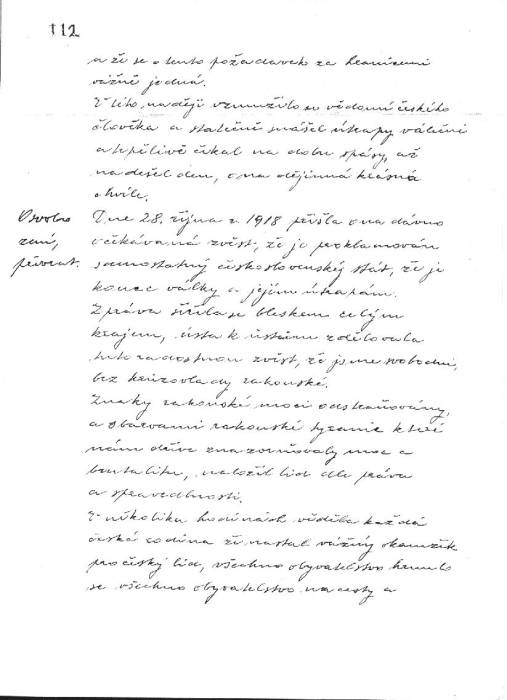 112
a že se o tento požadavek za hranicemi
vážně jedná.
V této naději vzmužilo se vědomí českého
člověka a statečně snášel útrapy válečné
a trpělivě čekal na dobu spásy, až
nadešel den, ona dějinná krásná
chvíle.
Osvobo
zení,
převrat.
Dne 28. října r. 1918 přišla ona dávno
očekávaná zvěst, že je proklamován
samostatný československý stát, že je
konec války a jejím útrapám.
Zpráva šířila se bleskem celým
krajem, ústa k ústům sdělovala
tuto radostnou zvěst, že jsme svobodni,
bez krutovlády rakouské.
Znaky rakouské moci odstraňovány,
a s barvami rakouské tyranie které
nám dříve znázorňovaly moc a
brutalitu, naložil lid dle práva
a spravedlnosti.
V několika hodinách věděla každá
česká rodina že nastal vážný okamžik
pro český lid, všechno obyvatelstvo hrnulo
se všechno obyvatelstvo na cesty a